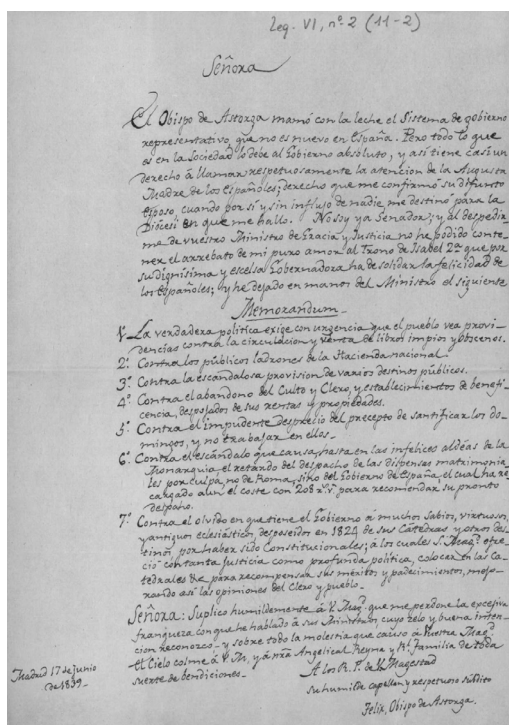 Leg. VI, nº 2 (11-2)
Señora
El Obispo de Astorga mamó con la leche el Sistema de gobierno
representativo, que no es nuevo en España. Pero todo lo que
es en la Sociedad lo debe al Gobierno absoluto, y así tiene casi un
derecho á llamar respetuosamente la atencion de la Augusta
Madre de los Españoles; derecho que me confirmó su difunto
Esposo, cuando por sí y sin influjo de nadie me destinó para la
Diócesi en que me hallo. No soy ya Senador; y al despedir
me de vuestro Ministro de Gracia y Justicia no he podido conte-
ner el arrebato de mi puro amor al Trono de Isabel 2ª que por
su dignísima y escelsa Gobernadora ha de solidar la felicidad de
los Españoles; y he dejado en manos del Ministro el siguiente
Memorandum
1º La verdadera politica exige con urgencia que el pueblo vea provi-
dencias contra la circulacion y venta de libros impios y obscenos.
2º Contra los públicos ladrones de la Hacienda nacional.
3º Contra la escandalosa provision de varios destinos públicos.
4º Contra el abandono del Culto y Clero, y establecimientos de benefi-
cencia, despojados de sus rentas y propiedades.
5º Contra el impudente desprecio del precepto de santificar los do-
mingos, y no trabajar en ellos.
6º Contra el escándalo que causa, hasta en las infelices aldéas de la
Monarquia, el retardo del despacho de las dispensas matrimonia-
les por culpa, no de Roma, sino del Gobierno de España, el cual ha re-
cargado aun el coste con 208 r.v. para recomendar su pronto
despacho.
7º Contra el olvido en que tiene el Gobierno á muchos sabios, virtuosos,
y antiguos eclesiásticos, desposeidos en 1824 de sus Cátedras y otros des-
tinos, por haber sido Constitucionales; á los cuales V. Magd ofre-
ció con tanta justicia como profunda politica, colocar en las Ca-
tedrales &c para recompensar sus méritos y padecimientos, mejo-
rando así las opiniones del Clero y pueblo.
Señora: Suplico humildemente á V. Magd que me perdone la excesiva
franqueza con que he hablado á sus Ministros, cuyo zelo y buena inten-
cion reconozco, y sobre todo la molestia que causo á Vuestra Magd
El Cielo colme á V.M, y á nra Angelical Reyna y Rl Familia de toda
suerte de bendiciones.
Madrid 17 de junio
de 1839.
A los R. P. de V. Magestad
su humilde capellan y respetuoso súbdito
Felix, Obispo de Astorga.